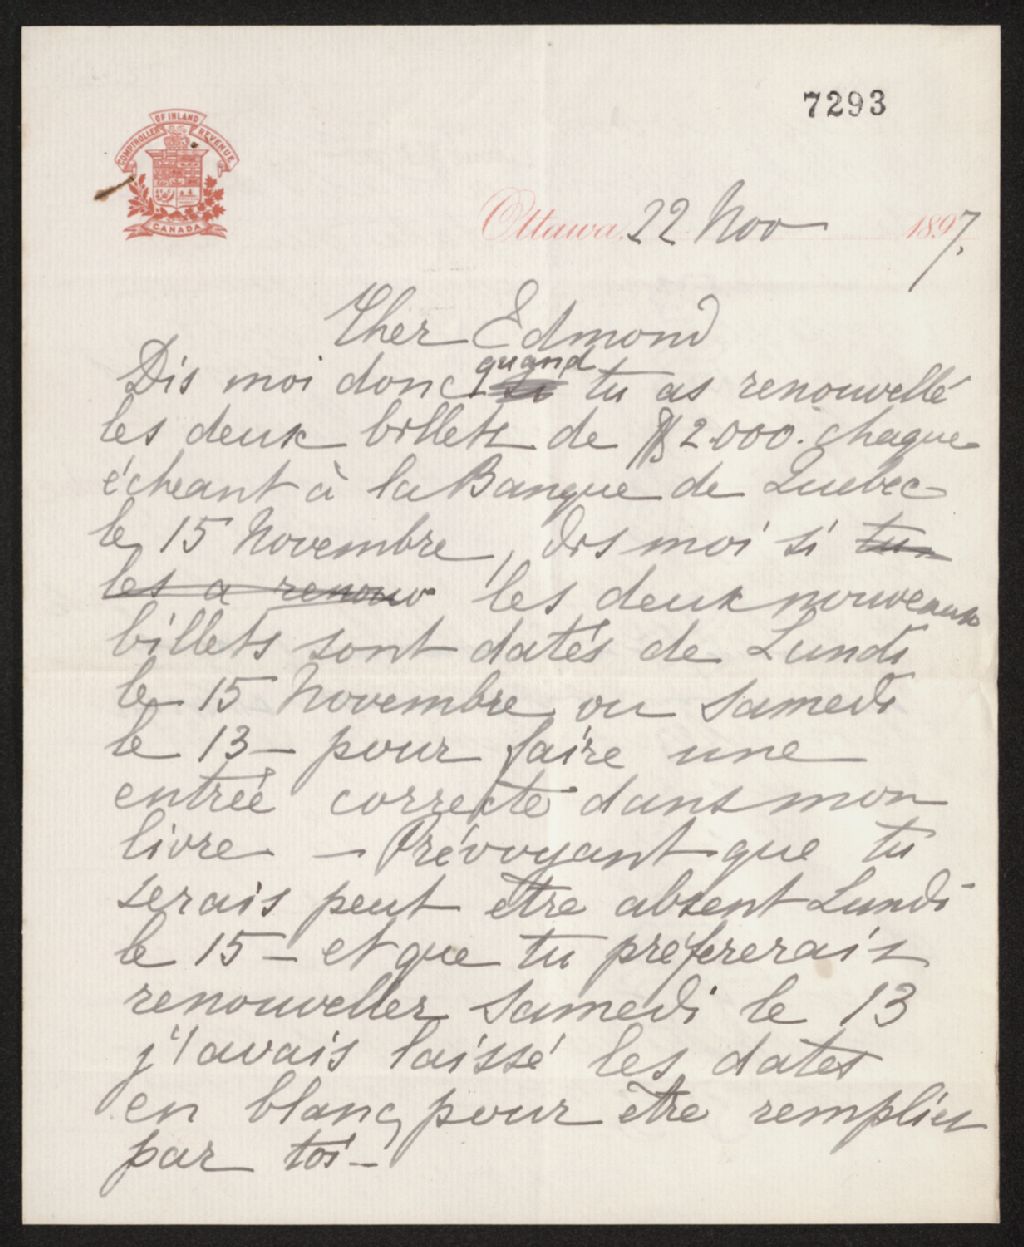 7293
COMPTROLLER OF INLAND REVENUE
CANADA
Ottawa, 22 Nov 1897.
Cher Edmond
Dis moi donc quand si tu as renouvellé
les deux billets de $2.000. chaque
échéant à la Banque de Quebec
le 15 Novembre, dis moi si tu
les a renouv les deux nouveaux
billets sont datés de Lundi
le 15 Novembre ou Samedi
le 13 – pour faire une
entrée correcte dans mon
livre – Prévoyant que tu
serais peut être absent Lundi
le 15 – et que tu préfererais
renouveller Samedi le 13
j'avais laissé les dates
en blanc, pour être remplies
par toi –